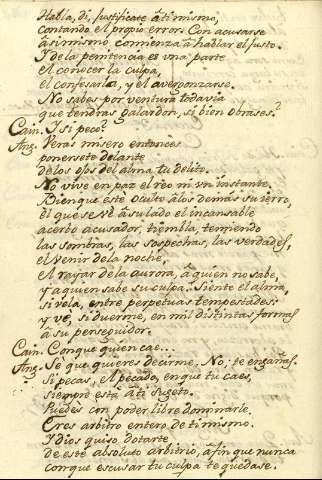 Habla, di, justificate â ti mismo,
contando el propio error. Con acusarse
â si mismo comienza â hablar el justo.
Y de la penitencia es una parte
el conocer la culpa,
el confesarla, y el avergonzarse.
No sabes por ventura todavia
que tendras galardon, si bien obrases?
Cain. Y si peco?
Ang. Veras misero entonces
ponersete delante
de los ojos del alma tu delito.
No vive en paz el reo ni un instante,
Bien que esté oculto â los demas su ierro,
el que se vé â su lado el incansable
acerbo acusador, tiembla, temiendo
las sombras, las sospechas, las verdades,
el venir de la noche,
el rayar de la aurora, â quien no sabe,
y a quien sabe su culpa. Siente el alma,
si vela, entre perpetuas tempestades:
y vé, si duerme, en mil distintas formas
â su perseguidor.
Cain. Conque quien cae...
Ang. Se que quieres decirme. No; te engañas.
Si pecas, el pecado, en que tu caes,
siempre está â ti sugeto.
Puedes con poder libre dominarle,
Eres arbitro entero de ti mismo.
Y dios quiso dotarte
de este absoluto arbitrio, â fin que nunca
con que escusar tu culpa te quedase.